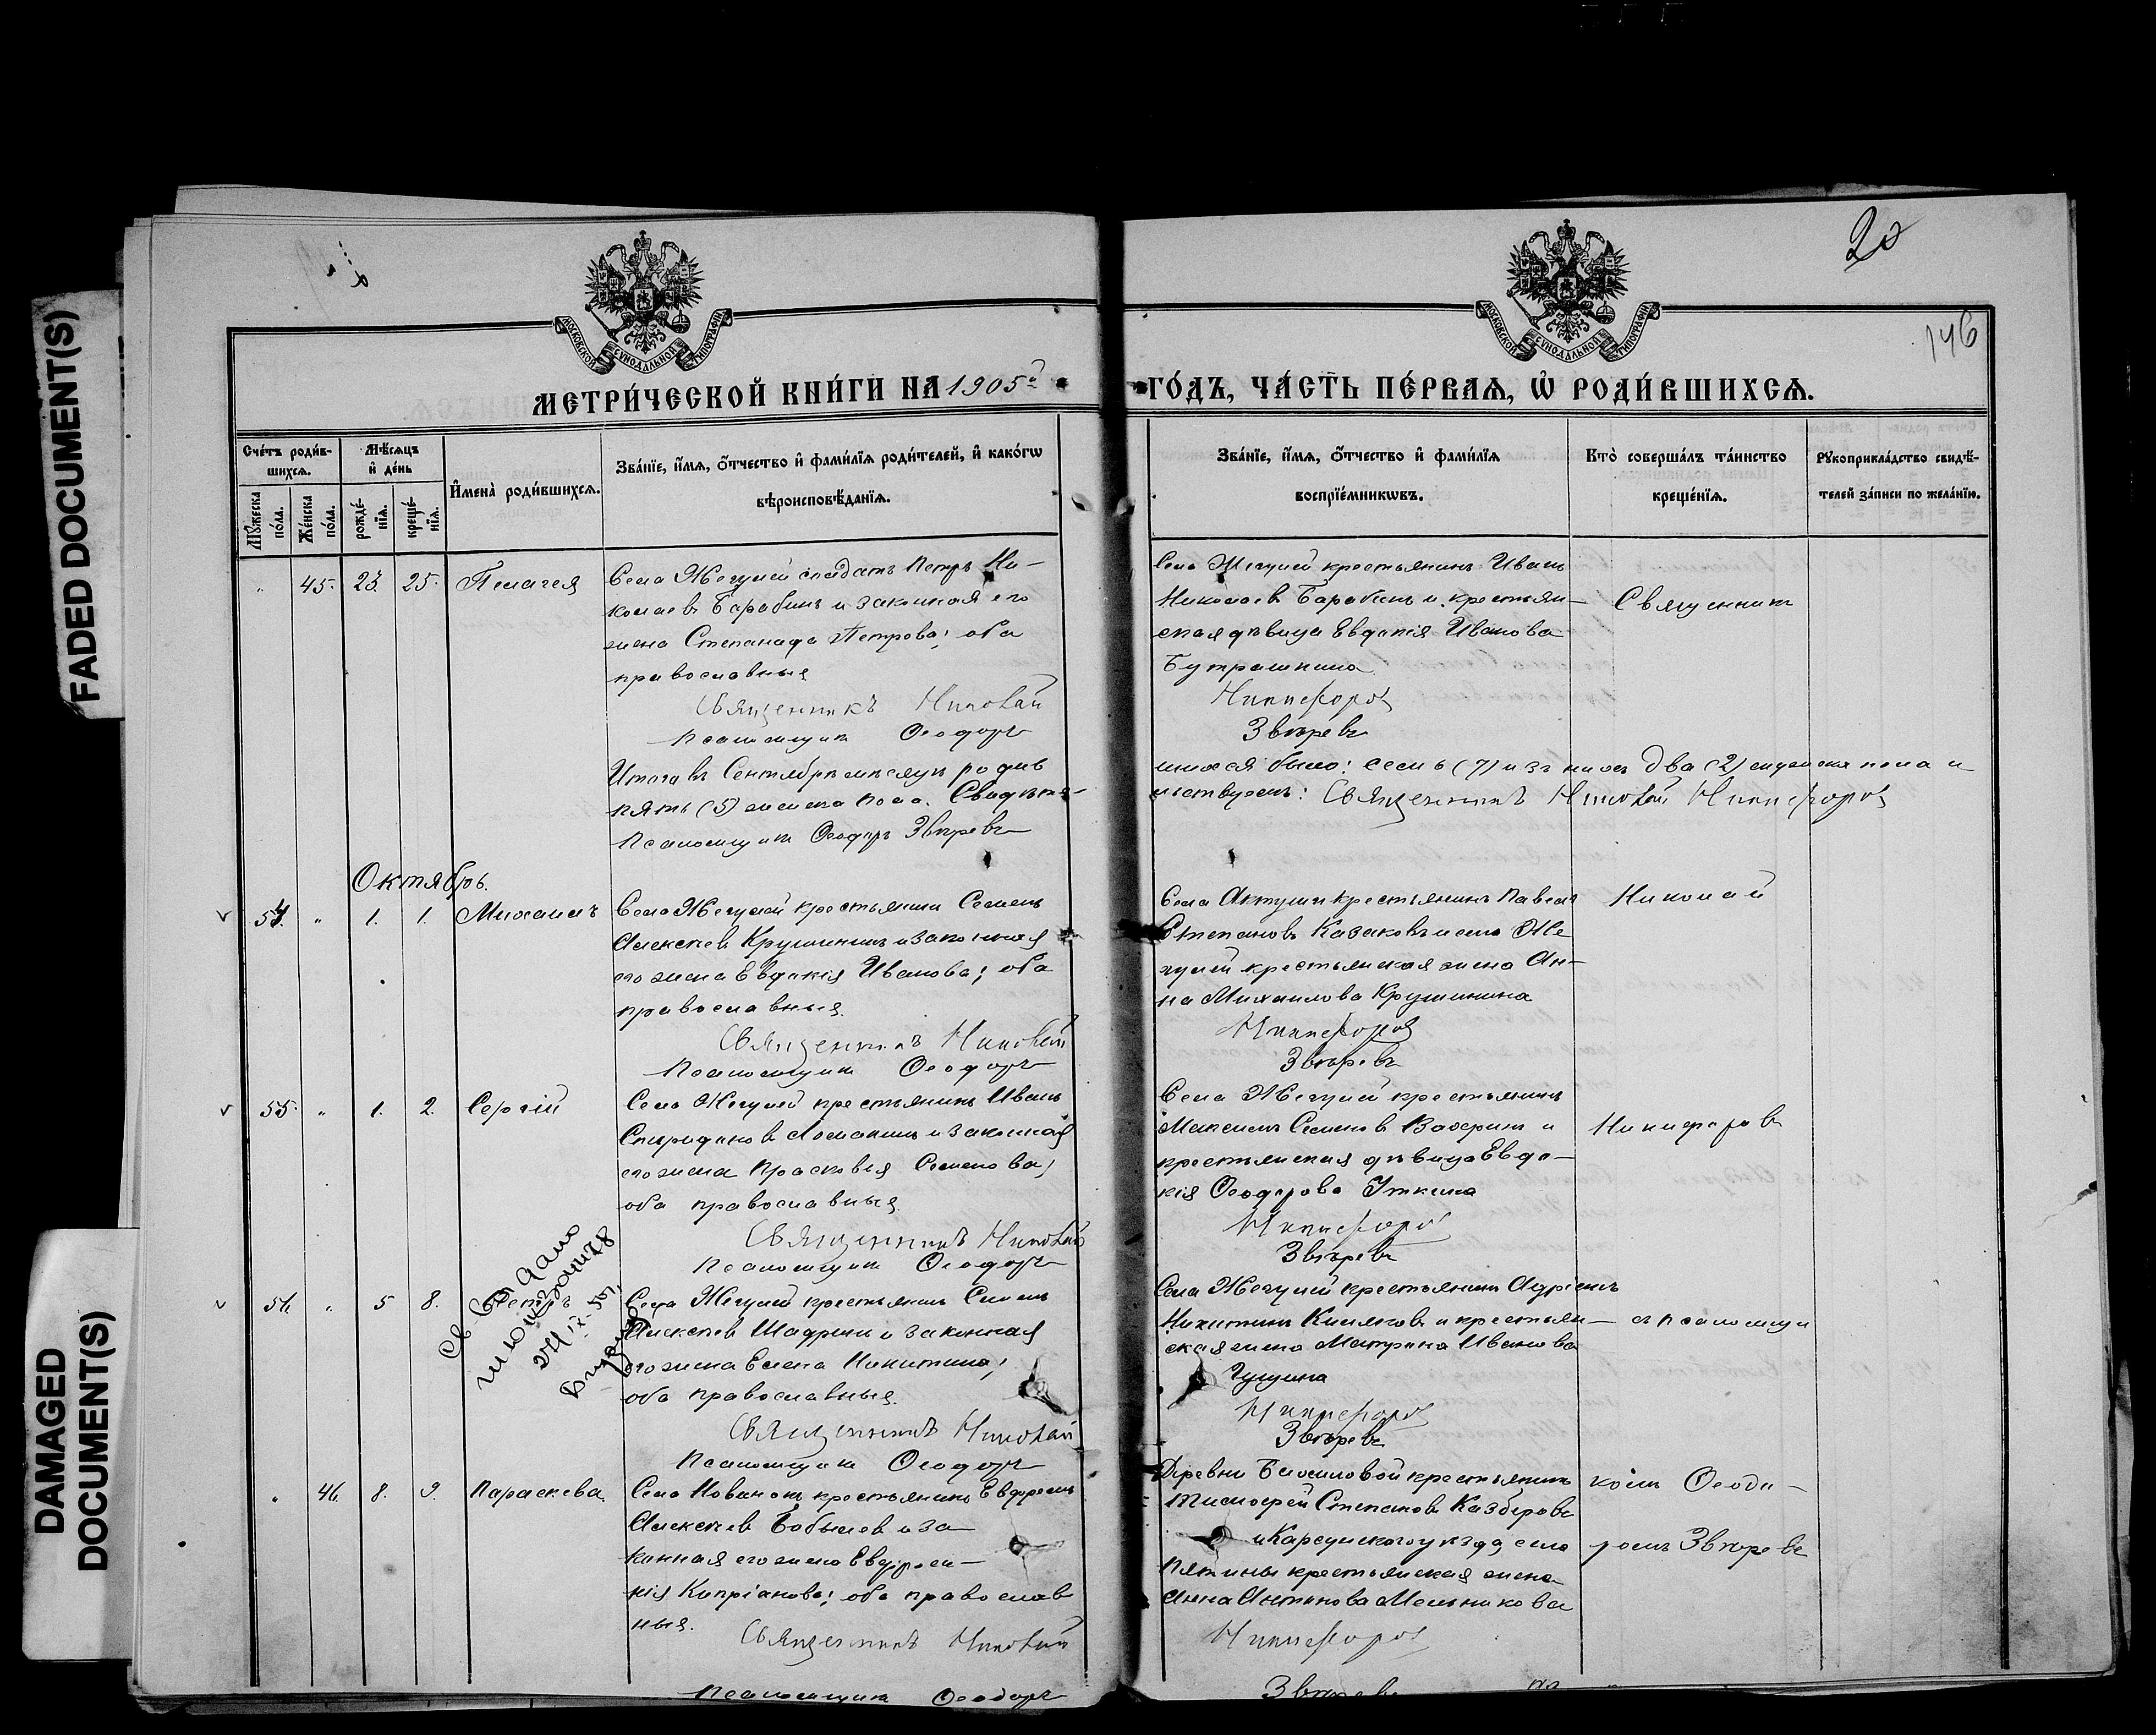 FADED DOCUMENT(S)
DAMAGED
DOCUMENT(S)
20
146
МОСКОВСКОЙ СѴНОДАЛЬНОЙ ТИПОГРАФІИ
МОСКОВСКОЙ СѴНОДАЛЬНОЙ ТИПОГРАФІИ
МЕТРИ́ЧЕСКОЙ КНИ́ГИ НА 1905й
ГО́ДЪ, ЧА́СТЬ ПЕ́РВАѦ, Ѡ҆ РОДИ́ВШИХСѦ.
Сче́тъ роди́в-
шихсѧ.
Мꙋ́жеска по́ла.
Же́нска по́ла.
Мѣ́сѧцъ
и҆ де́нь
рожде́-
нїѧ.
креще́-
нїѧ.
И҆мена̀ роди́вшихсѧ.
Зва́нїе, и҆́мѧ, ѻ҆́тчество и҆ фами́лїѧ роди́телей, и҆ како́гѡ
вѣроисповѣ́данїѧ.
Зва́нїе, и҆́мѧ, ѻ҆́тчество и҆ фами́лїѧ
воспрїе́мникѡвъ.
Кто̀ соверша́лъ та́инство
креще́нїѧ.
Рꙋкоприкла́дство свидѣ́-
телей за́писи по жела́нїю.
" 45. 23. 25. Пелагея
Села Жегулей солдатъ Петръ Ни-
колаевъ Барабинъ и законная его
жена Степанида Петрова; оба
православныя
Священникъ Николай
Псаломщикъ Ѳеодоръ
Села Жегулей крестьянинъ Иванъ
Николаевъ Барабинъ и крестьян-
ская дѣвица Евдокія Иванова
Никифоровъ
Звѣревъ
Священникъ
Итого въ Сентябрѣ мѣсяцѣ родив
шихся было: семь (7) изъ нихъ два (2) мужеска пола и
пять (5) женска пола. Свидѣтель-
ствуемъ: Священникъ Николай Никифоровъ
Псаломщикъ Ѳеодоръ Звѣревъ
Октябрь.
54. " 1. 1. Михаилъ
Села Жегулей крестьянинъ Семенъ
Алексѣевъ Крушининъ и законная
его жена Евдокія Иванова; оба
православныя.
Священникъ Николай
Псаломщикъ Ѳеодоръ
Села Актуши крестьянинъ Павелъ
Степановъ Казаковъ и села Же
гулей крестьянская жена Ан-
на Михаилова Крушинина
Никифоровъ
Звѣревъ
Николай
55. " 1. 2. Сергій
Села Жегулей крестьянинъ Иванъ
Спиридоновъ Ломакинъ и законная
его жена Прасковья Семенова;
оба православныя.
Священникъ Николай
Псаломщикъ Ѳеодоръ
Села Жегулей крестьянинъ
Максимъ Семеновъ и
крестьянская дѣвица Евдо-
кія Ѳеодорова Уткина
Никифоровъ
Звѣревъ
Никифоровъ
56. " 5 8. Петръ
Села Жегулей крестьянинъ Симеонъ
Алексѣевъ Шадринъ и законная
его жена Елена Никитина;
оба православныя.
Священникъ Николай
Псаломщикъ Ѳеодоръ
Села Жегулей крестьянинъ Адріанъ
Никитинъ Кисляковъ и крестьян-
ская жена Матрона Иванова
Никифоровъ
Звѣревъ
съ псаломщи
" 46. 8. 9. Параскева.
крестьянинъ Евфремъ
Алексѣевъ Бобылевъ и за
конная его жена Евфроси-
нія Кипріанова; оба православ
ныя.
Священникъ Николай
Псаломщикъ Ѳеодоръ
крестьянинъ
Тимофей Степановъ
и Карсунскаго уѣзда, села
Пятины крестьянская жена
Анна Антонова Мельникова
Никифоровъ
Звѣревъ
комъ Ѳеодо-
ромъ Звѣревъ